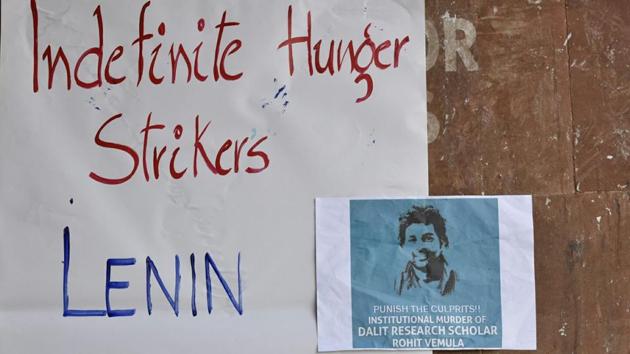 Indefinite Hunger
Strikers
LENIN
OR
PUNISH THE CULPRITS!!
INSTITUTIONAL MURDER OF
DALIT RESEARCH SCHOLAR
ROHIT VEMULA